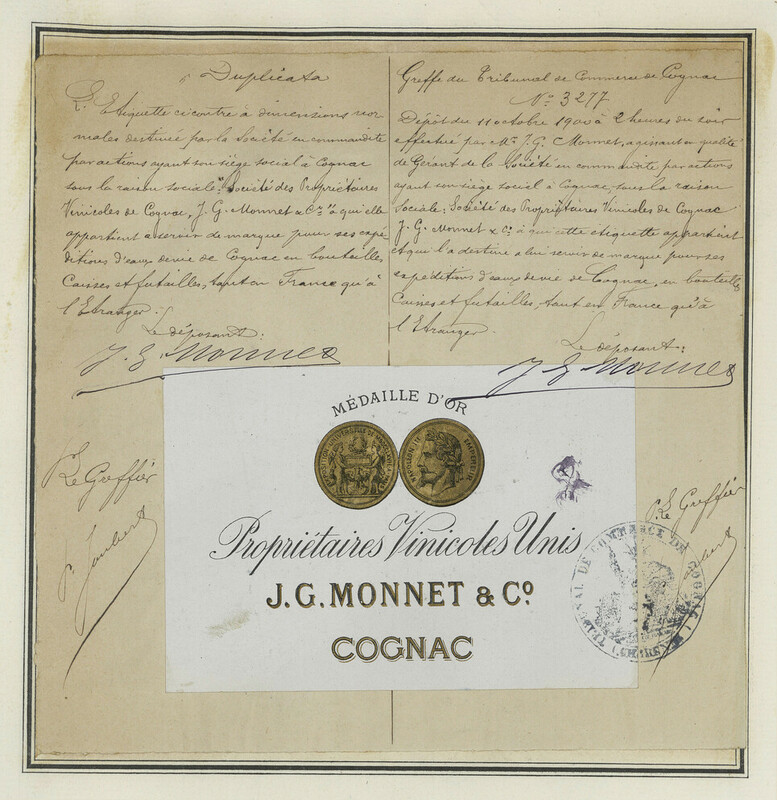 Duplicata
L'Etiquette ci contre à dimensions nor
males destinée par la Société en commandite
par actions ayant son siège social à Cognac
sous la raison sociale: "Société des Propriétaires
Vinicoles de Cognac, J. G. Monnet & Cie" à qui elle
appartient a servir de marque pour ses expé
ditions d'eaux de vie de Cognac en bouteilles
Caisses et futailles, tant en France qu'à
l'Etranger.
Le déposant:
J. G. Monnet
P. Le Greffier
Greffe du Tribunal de Commerce de Cognac
No 3277
Dépôt du 11 octobre 1900 à 2 heures du soir
effectué par Mr J. G. Monnet, agissant en qualité
de Gérant de la Société en commandite par actions
ayant son siège social à Cognac, sous la raison
Sociale: Société des Propriétaires Vinicoles de Cognac
J. G. Monnet & Cie à qui cette étiquette appartient
et qui l'a destine a lui servir de marque pour ses
expéditions d'eaux de vie de Cognac, en bouteilles
Caisses et futailles, tant en France qu'à
l'Etranger.
Le déposant:
J. G. Monnet
P. Le Greffier
MÉDAILLE D'OR
NAPOLEON III EMPEREUR
Propriétaires Vinicoles Unis
J.G. MONNET & Co.
COGNAC
TRIBUNAL DE COMMERCE DE COGNAC